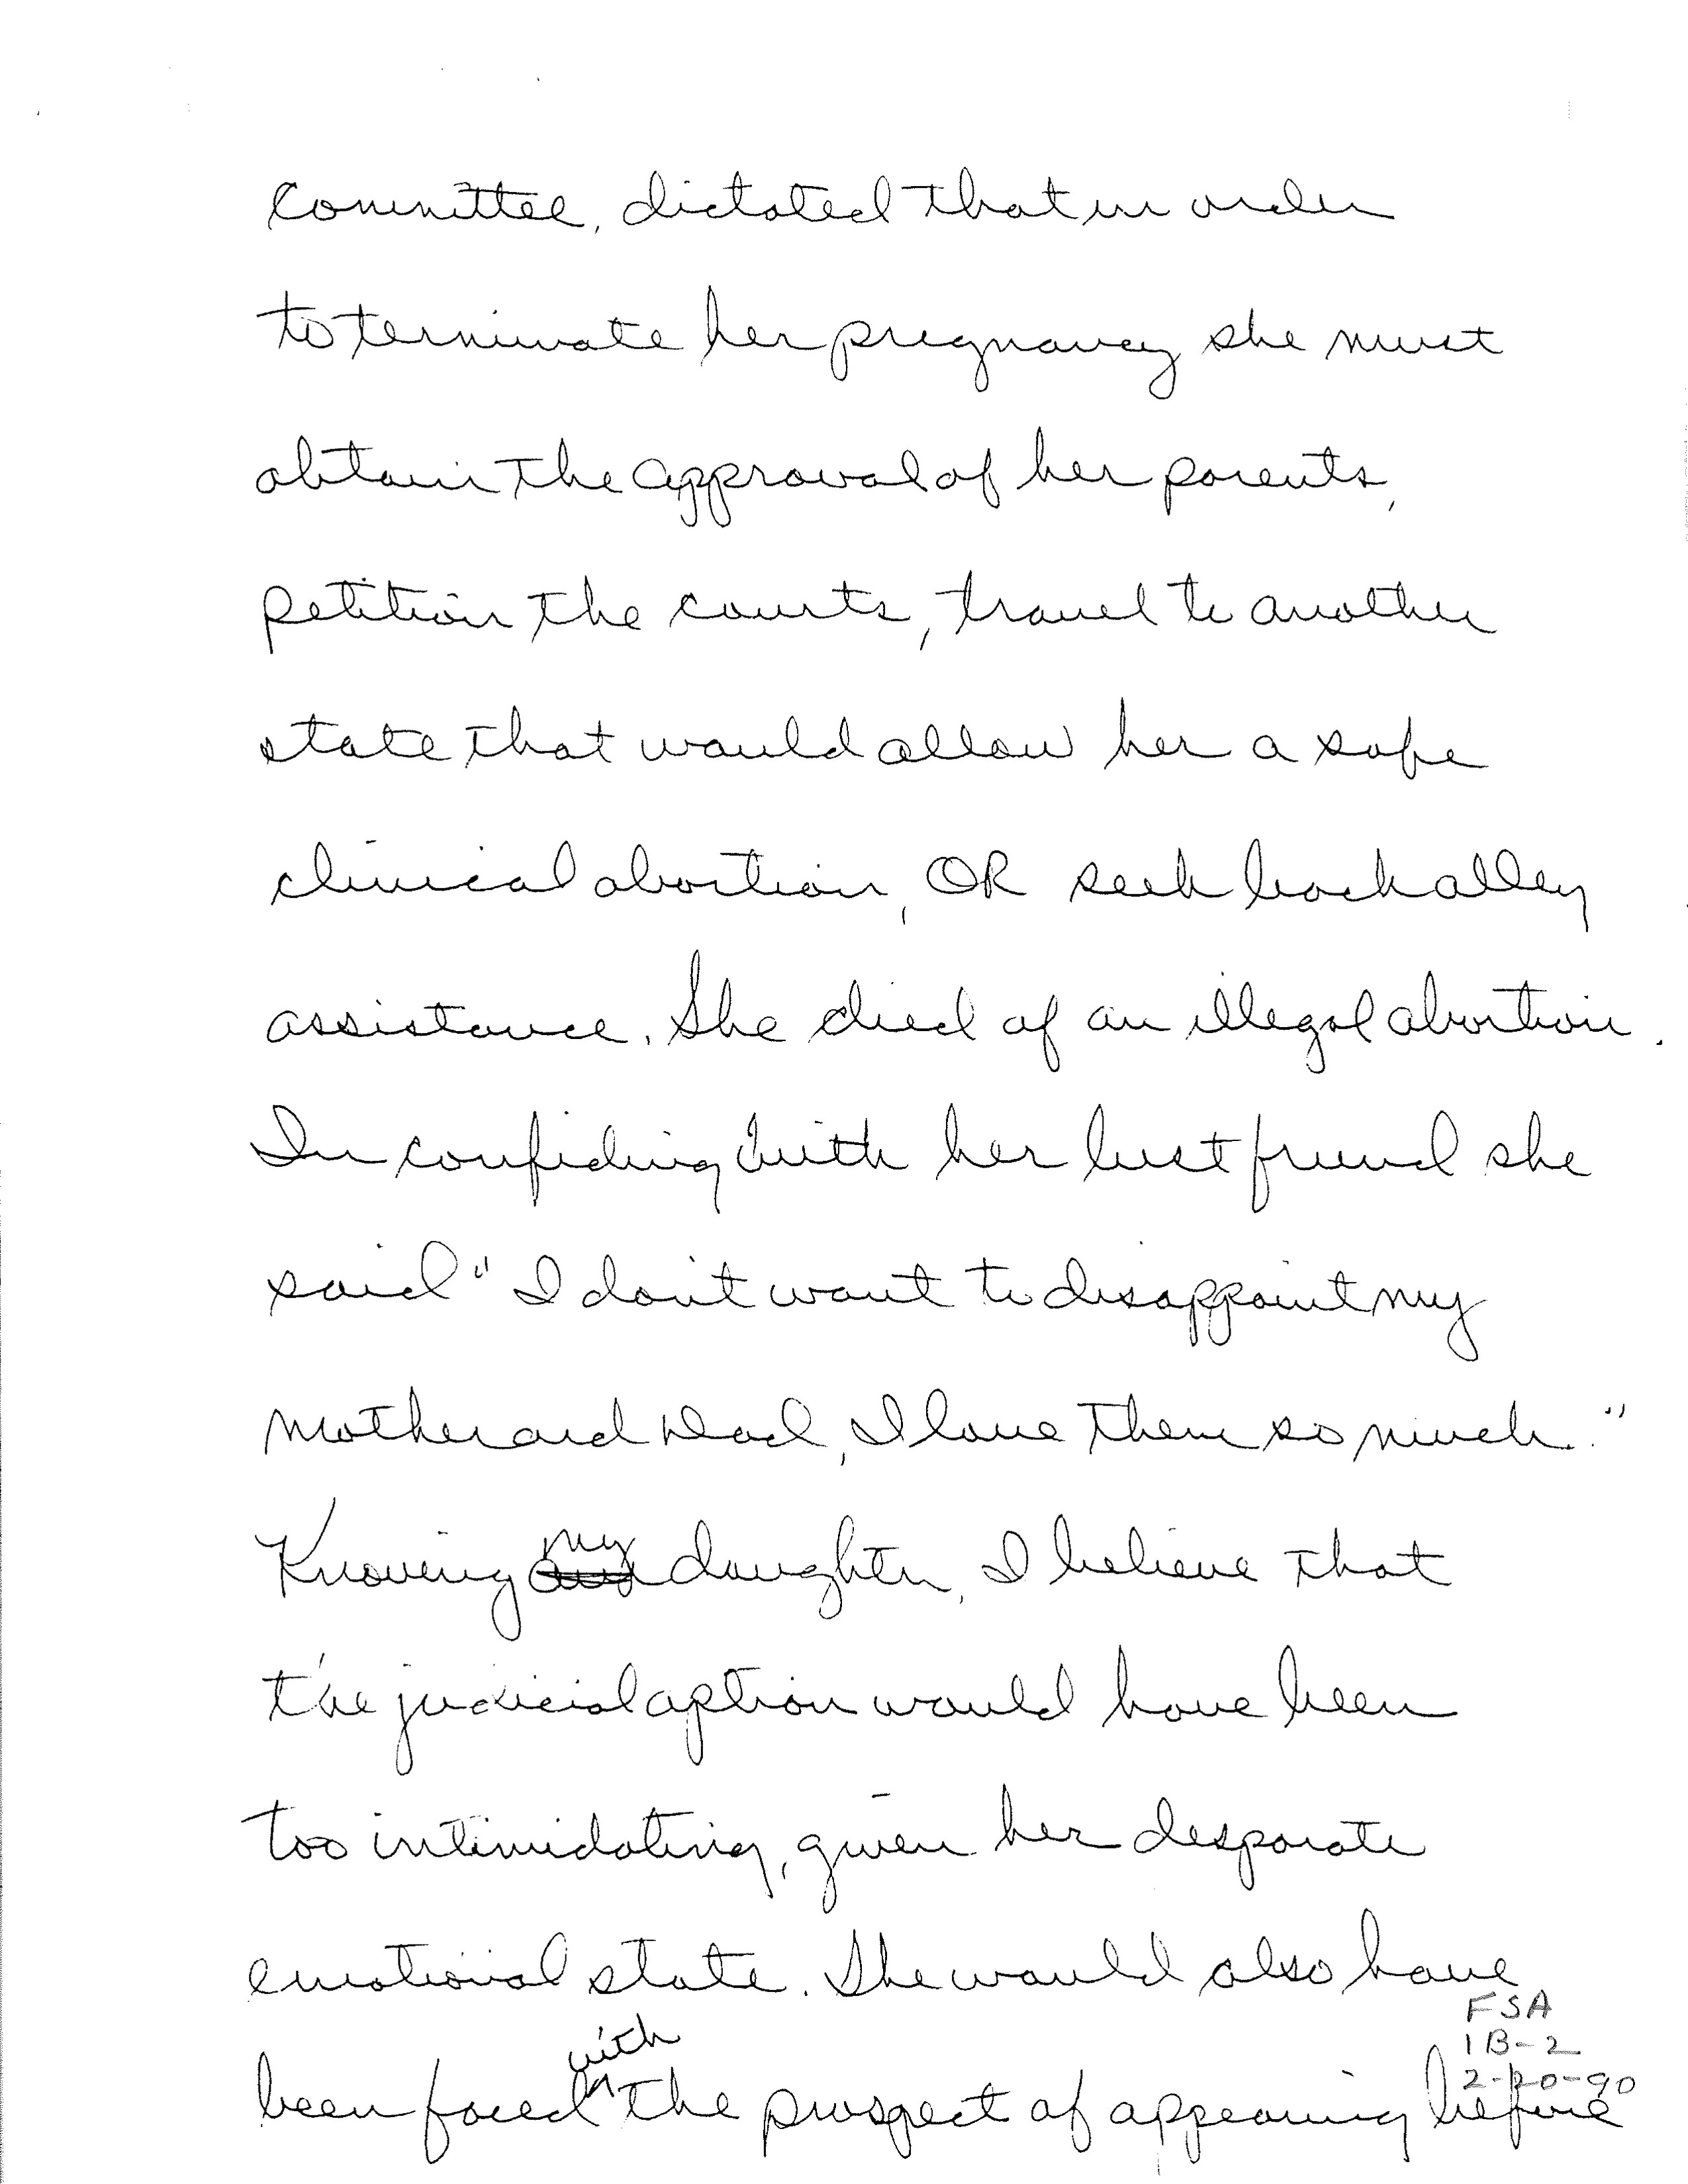 Committee, dictated that in order
to terminate her pregnancy she must
obtain the approval of her parents,
petition the courts, travel to another
state that would allow her a safe
clinical abortion, OR seek back alley
assistance. She died of an illegal abortion.
In confiding with her best friend she
said "I don't want to disappoint my
Mother and Dad, I love them so much."
Knowing my daughter, I believe that
the judicial option would have been
too intimidating, given her desparate
emotional state. She would also have
been faced with the prospect of appearing before
FSA
1B-2
2-20-90